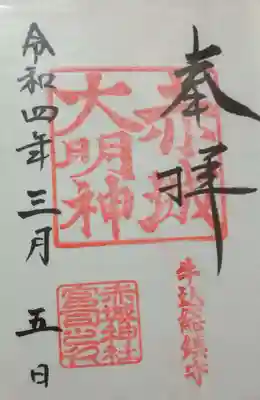 奉拝
赤城
大明神
牛込総鎮守
赤城神社
宮司之印
令和四年三月
五日